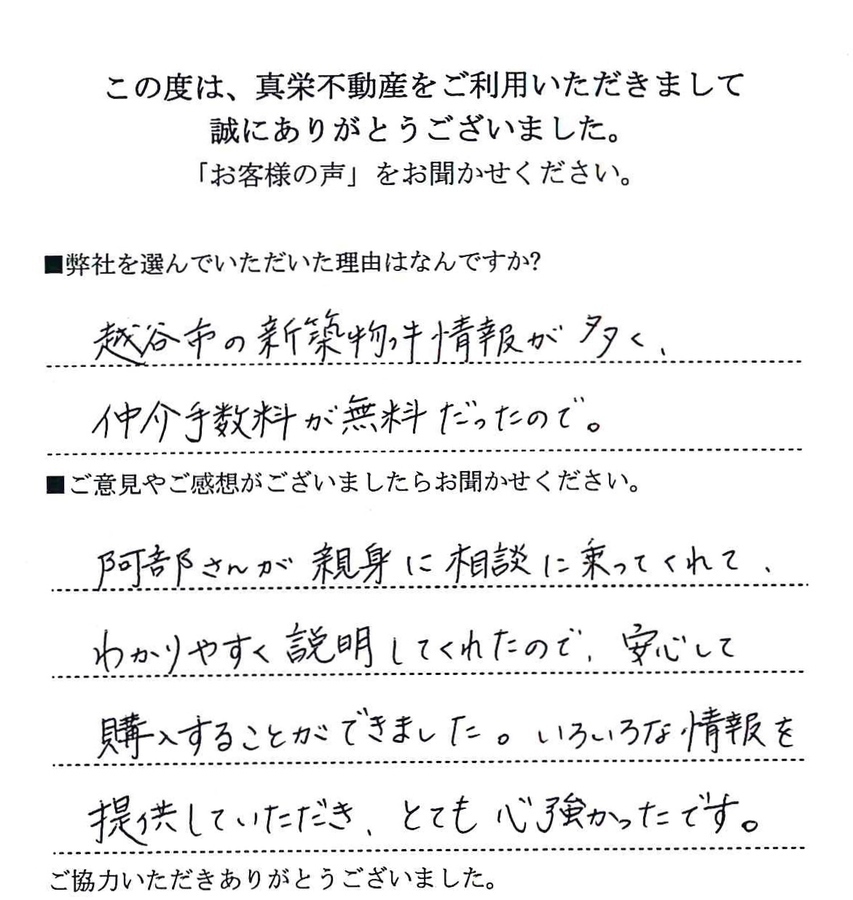 この度は、真栄不動産をご利用いただきまして
誠にありがとうございました。
「お客様の声」をお聞かせください。
■弊社を選んでいただいた理由はなんですか?
越谷市の新築物件情報が多く、
仲介手数料が無料だったので。
■ご意見やご感想がございましたらお聞かせください。
阿部さんが親身に相談に乗ってくれて、
わかりやすく説明してくれたので、安心して
購入することができました。いろいろな情報を
提供していただき、とても心強かったです。
ご協力いただきありがとうございました。